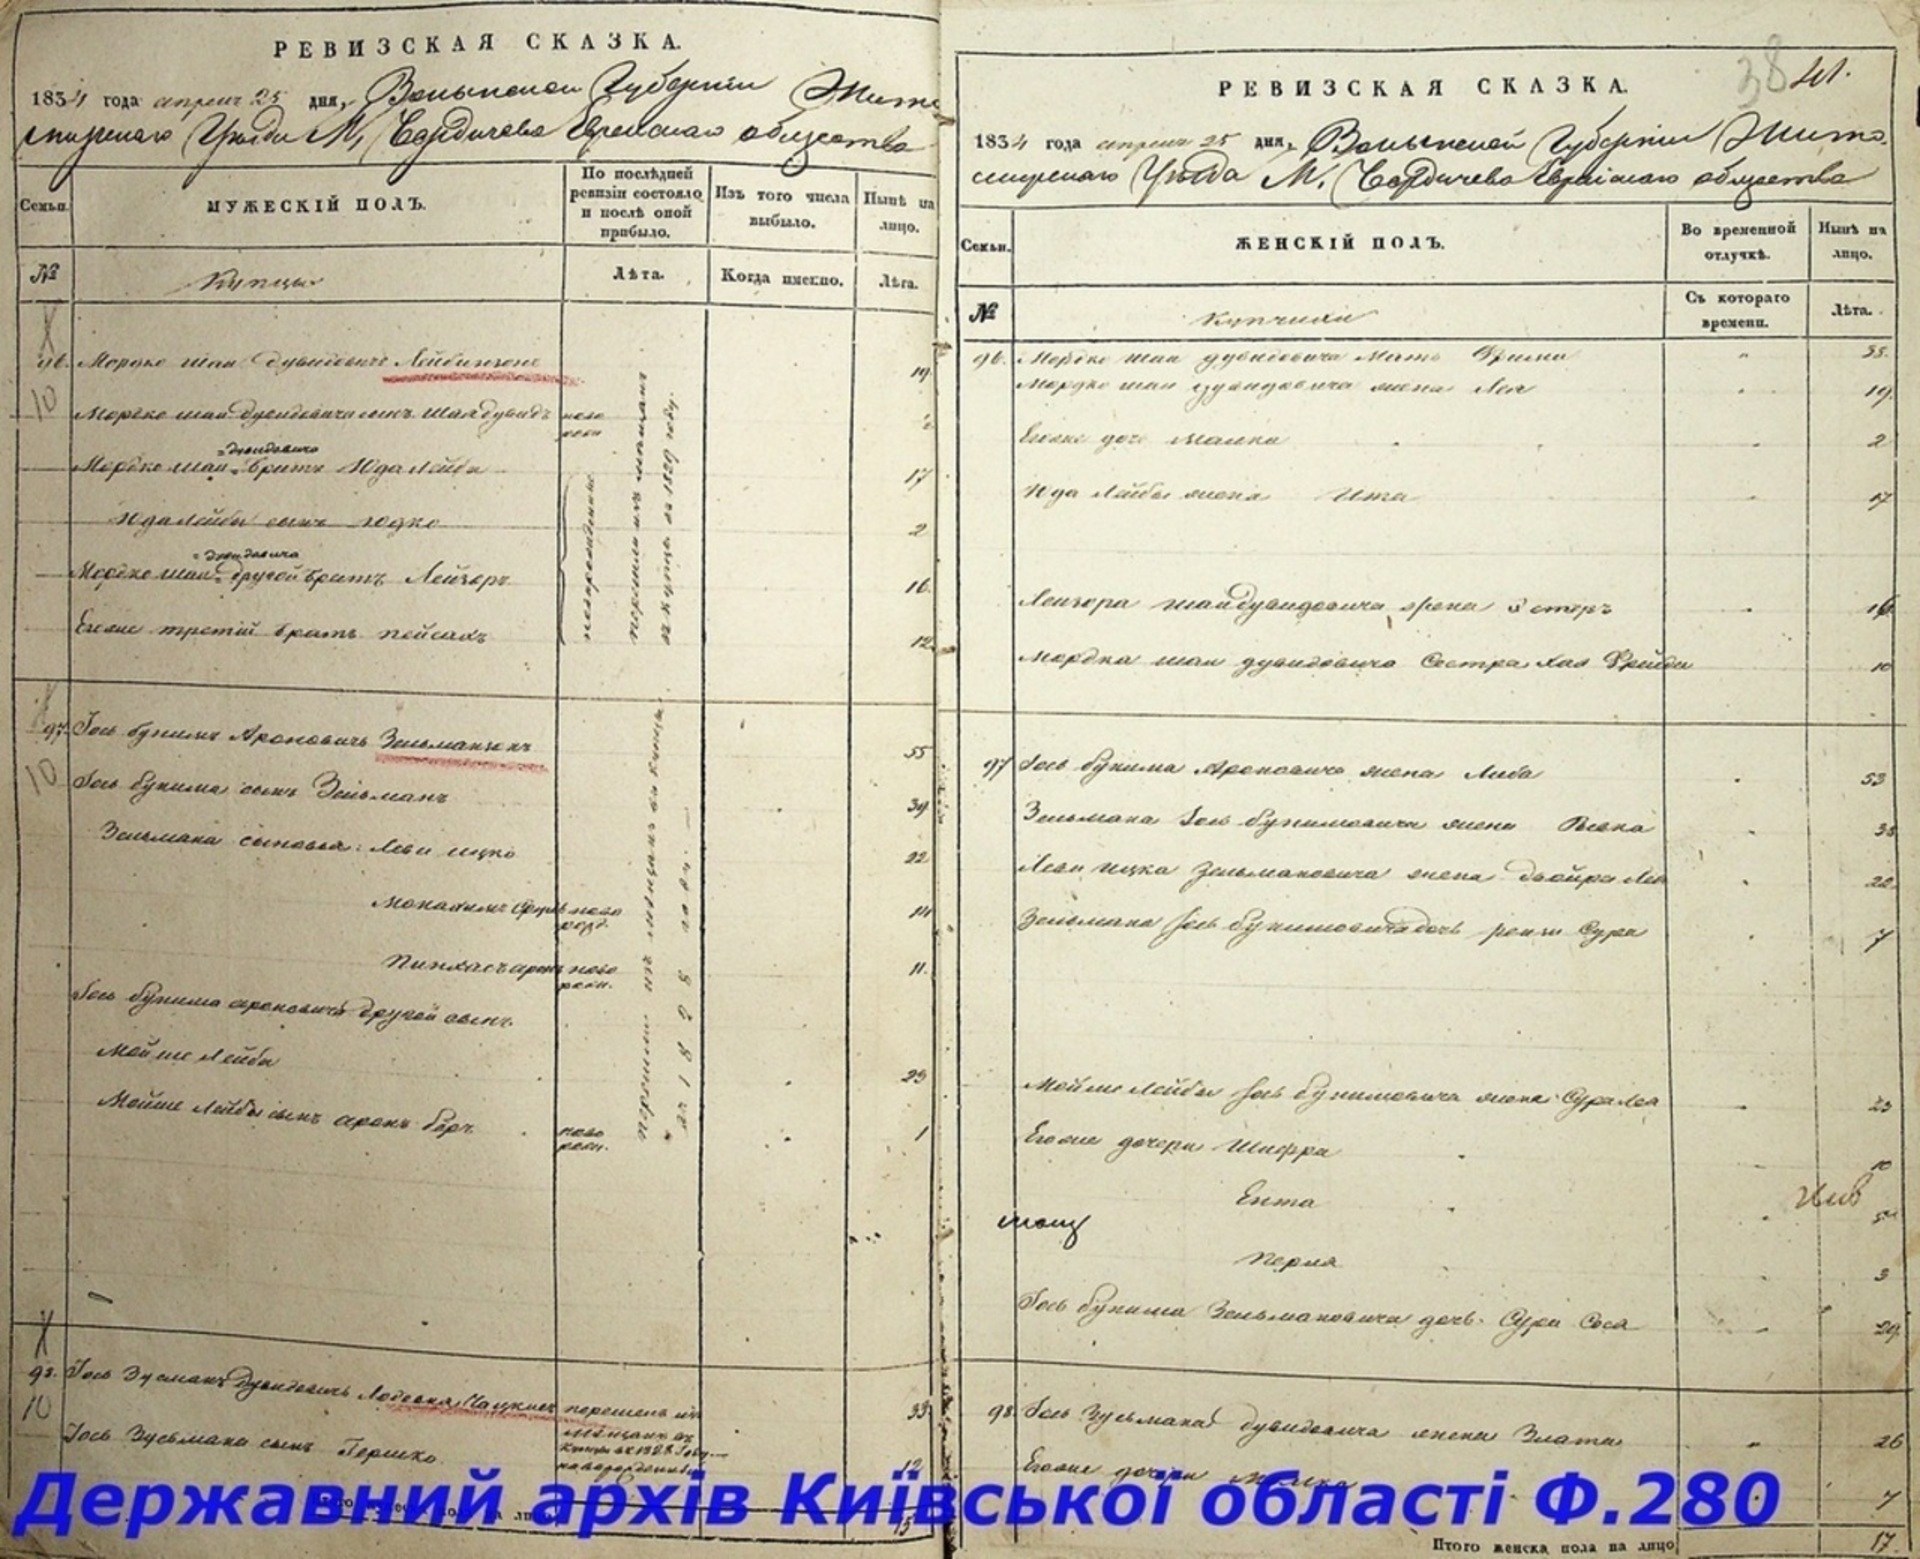 РЕВИЗСКАЯ СКАЗКА.
1834 года апреля 25 дня, Волынской Губернии Жито
мирскаго Уезда М. Бердичева Еврейскаго общества
Семьи.
МУЖЕСКІЙ ПОЛЪ.
По послѣдней ревизіи состояло и послѣ оной прибыло.
Изъ того числа выбыло.
Нынѣ на лицо.
№
Купцы
Лѣта.
Когда имянно.
Лѣта.
96. Мордко шая Дувидовичъ Лейбинзонъ 19
10
Мордко шаи Дувидовича сынъ Шая Дувидъ ново рожд.
Мордко шаи Дувидовича братъ Юда Лейба 17
Юда Лейбы сынъ Юдко 2
Мордко шаи Дувидовича другой братъ Лейзоръ 16.
Егоже третій братъ Пейсахъ 12
перешли изъ мещанъ
въ купцы въ 1829 году.
97. Іось Бунимъ Ароновичъ Зельманзонъ 55
10
Іось Бунима сынъ Зельманъ 39
Зельмана сыновья: Леви ицко 22
ново рожд.
Пинхасъ аронъ ново рожд. 11.
Іось Бунима Ароновича другой сынъ
Мойше Лейба 23
Мойше Лейбы сынъ аронъ беръ ново рожд. 1
перешли изъ мещанъ въ купцы
въ 1828 году.
98. Іось Зусманъ Дувидовичъ перешелъ изъ мещанъ въ купцы въ 1828 году 33
10
Іось Зусьмана сынъ Гершко новорожденный 12
15
РЕВИЗСКАЯ СКАЗКА.
38
41.
1834 года апреля 25 дня, Волынской Губерніи Жито
мирскаго Уезда М. Бердичева Еврейскаго общества
Семьи.
ЖЕНСКІЙ ПОЛЪ.
Во временной отлучкѣ.
Нынѣ на лицо.
№
Купчихи
Съ котораго времени.
Лѣта.
96. Мордко шаи Дувидовича мать Фрима 35.
Мордко шаи Дувидовича жена Лея 19.
Егоже дочь Малка 2
Юда Лейбы жена Ита 17
Лейзора шаи Дувидовича жена Эстеръ 16
Мордка шаи Дувидовича сестра Хая Фрейда 10
97 Іось Бунима Ароновича жена Либа 53
Зельмана Іось Бунимовича жена Ривка 38
Леви Ицка Зельмановича жена Двойра Лея 22
Зельмана Іось Бунимовича дочь Сура 7
Мойше Лейбы Іось Бунимовича жена Сура Лея 23
Егоже дочери Шифра 10
Ента
Перла 3
Іось Бунима Зельмановича дочь Сура Соса 29.
98. Іось Зусьмана Дувидовича жена Злата 26
Егоже дочери 7
Итого женска пола на лицо 17.
Державний архів Київської області Ф.280